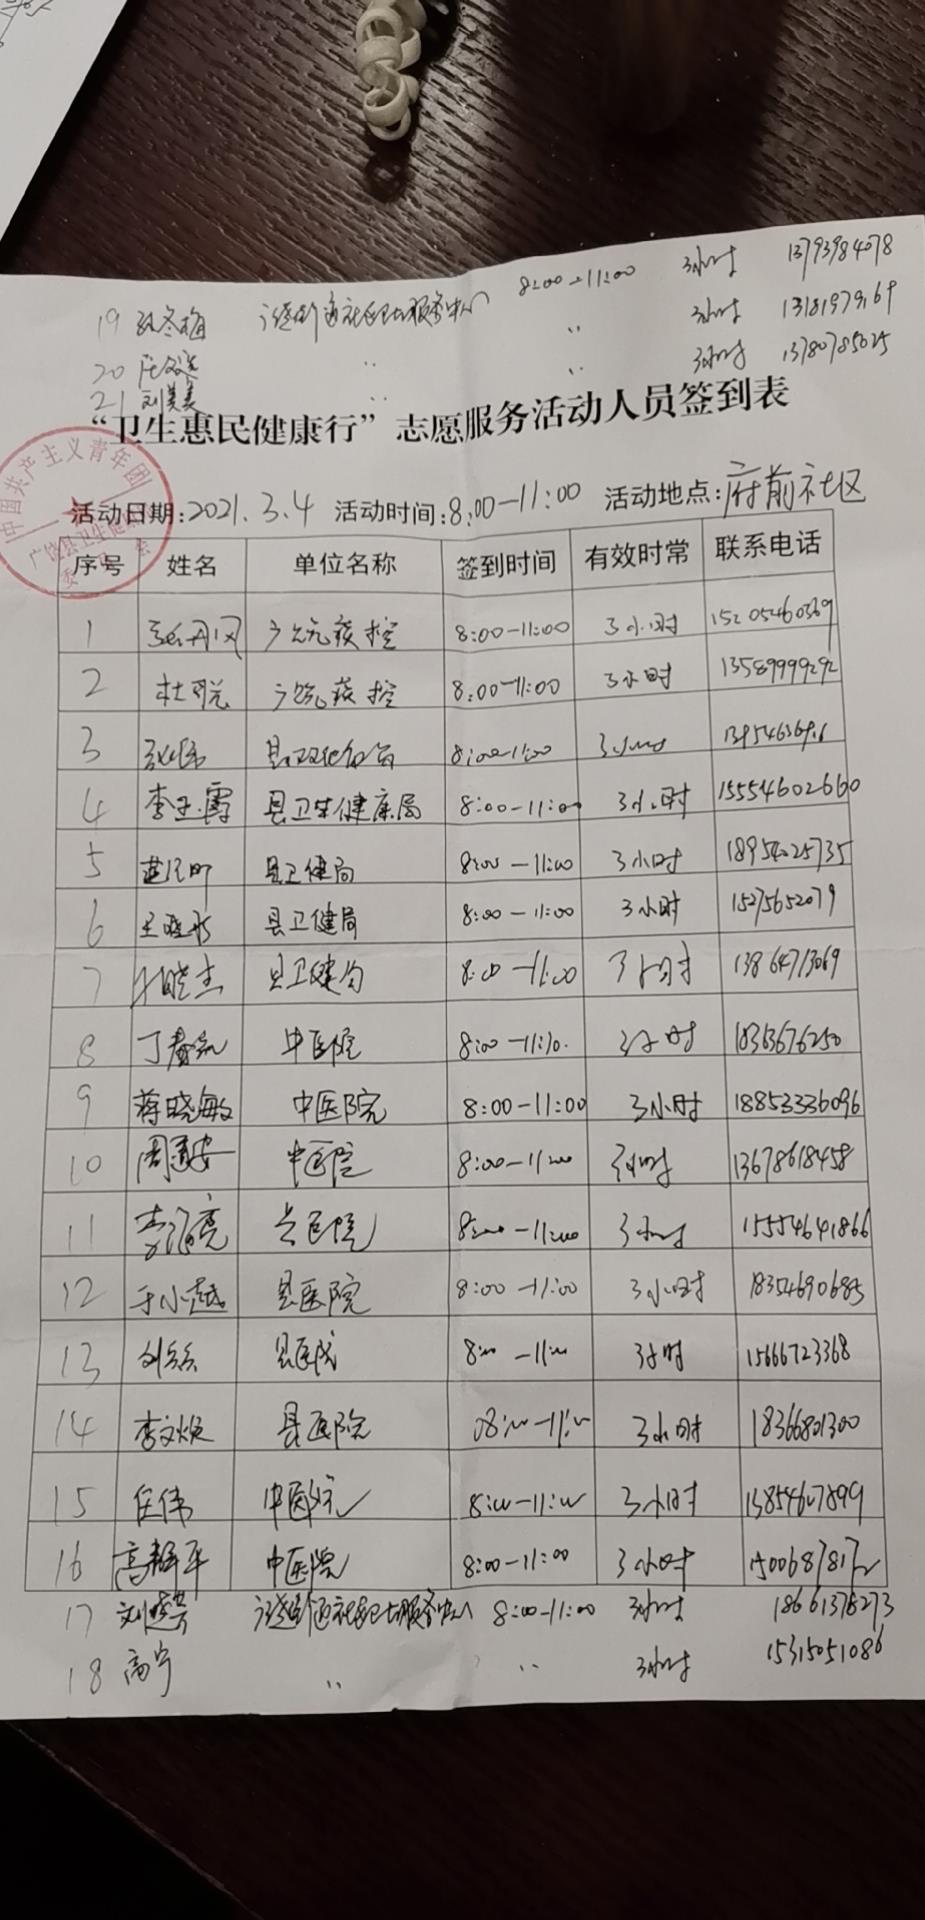 19 孙冬梅 8:00-11:00 3小时 13793984078
20 〃 〃 3小时 13181979169
21 刘美美 〃 〃 3小时 13780785025
“卫生惠民健康行”志愿服务活动人员签到表
中国共产主义青年团
广饶县卫生健康
委员会
活动日期:2021.3.4 活动时间:8:00-11:00 活动地点:府前社区
序号 姓名 单位名称 签到时间 有效时常 联系电话
1 广饶疾控 8:00-11:00 3小时 15205460369
2 广饶疾控 8:00-11:00 3小时 13589999292
3 8:00-11:00 3小时
4 县卫生健康局 8:00-11:00 3小时 15554602660
5 县卫健局 8:00-11:00 3小时 18954025735
6 县卫健局 8:00-11:00 3小时 15275652079
7 县卫健局 8:00-11:00 3小时 13864713069
8 中医院 3小时 18363676250
9 蒋晓敏 中医院 8:00-11:00 3小时 18853336096
10 周建安 中医院 8:00-11:00 3小时 13678618458
11 8:00-11:00 3小时 15554641866
12 于小越 县医院 8:00-11:00 3小时 18354690685
13 县医院 8:00-11:00 3小时 15666723368
14 李文焕 县医院 08:00-11:00 3小时 18366801300
15 任伟 中医院 8:00-11:00 3小时 13854627899
16 中医院 8:00-11:00 3小时
17 8:00-11:00 3小时 18661378273
18 高宁 〃 〃 3小时 15315051086